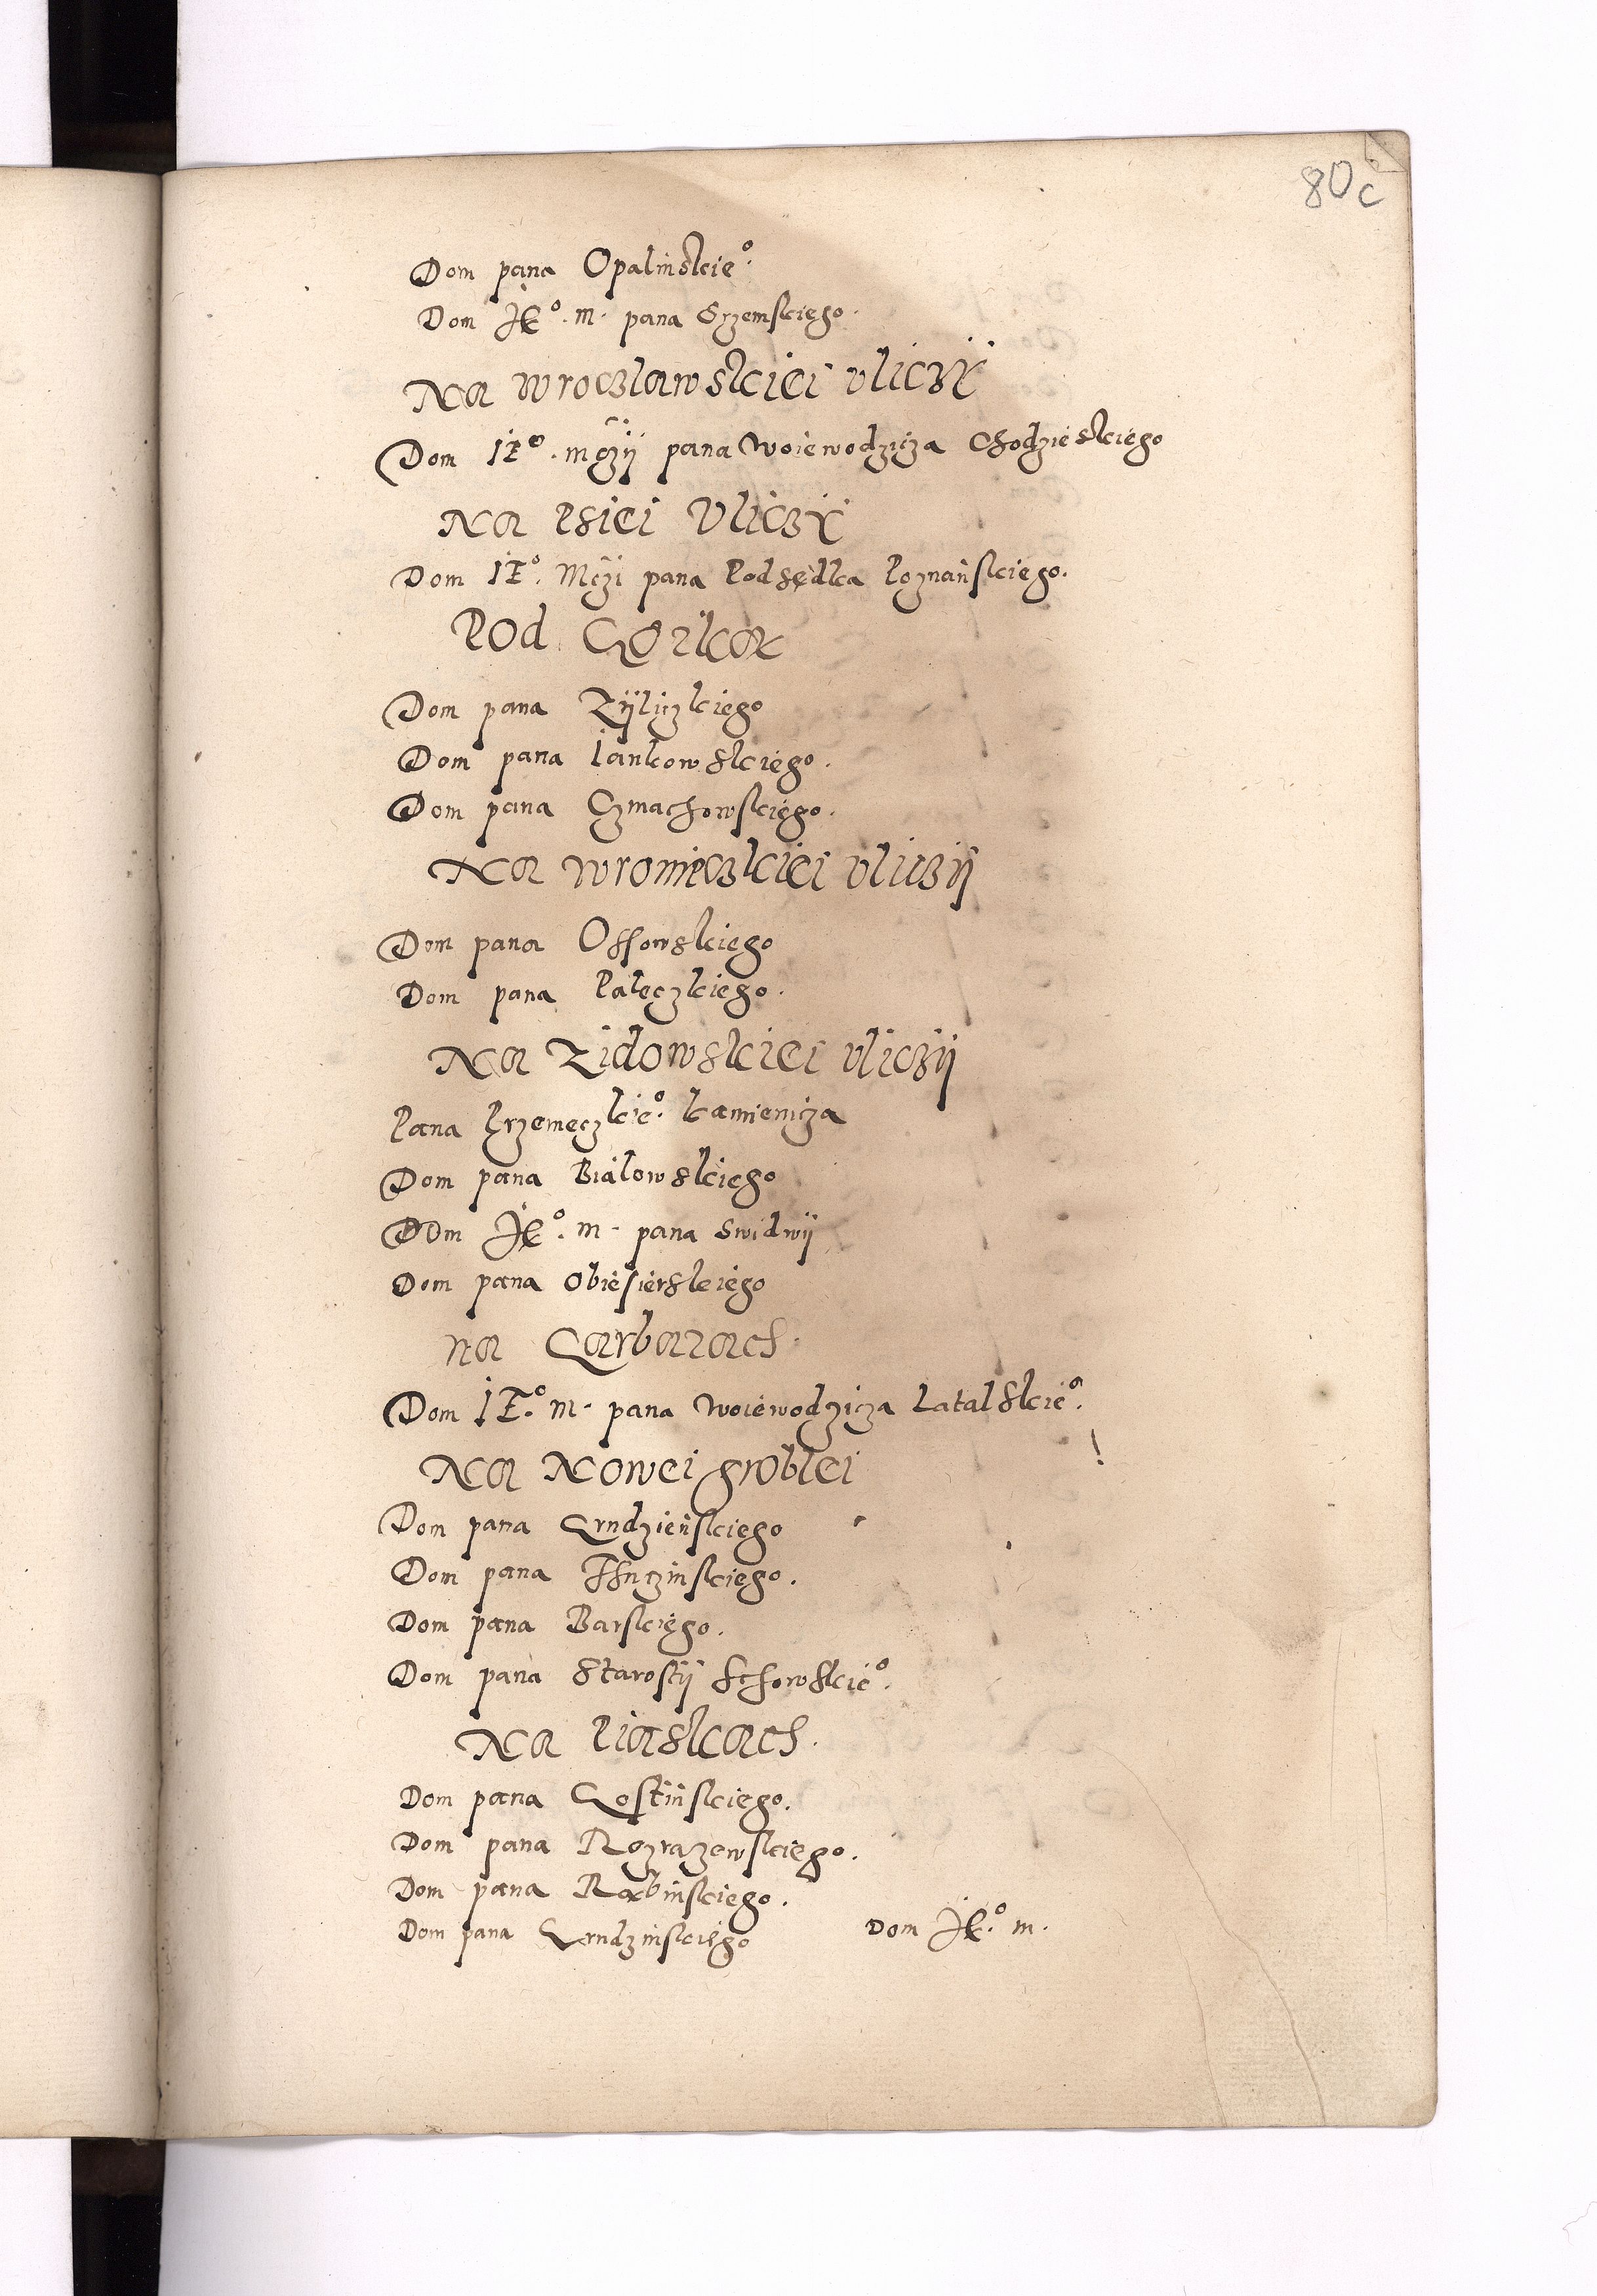 80c
Dom pana Opalinskie°.
Dom JE°. m. pana Srzemskiego.
Na wroczlawskiei vliczÿ
Dom IE°. mczÿ pana woiewodzicza Chodzieskiego
Na Psiei Vliczÿ
Dom IE°. Mczi pana Podsędka Poznańskiego.
Pod Gorką
Dom pana Zÿliczkiego
Dom pana Iankowskiego.
Dom pana Czmachowskiego.
Na wronieczkiei vliczij
Dom pana Ossowskiego
Dom pana Paleczkiego.
Na Zidowskiei vliczij
Pana Przemeczkie°. kamienicza
Dom pana Bialowskiego
Dom JE°. m. pana Swidwij
Dom pana Obiesierskiego
na Garbarach.
Dom IE°. m. pana woiewodzicza Latalskie°.
Na Nowei groblei
Dom pana Grudzieńskiego
Dom pana
Dom pana Barskiego.
Dom pana Starostij Schowskie°.
Na Piaskach.
Dom pana Gostinskiego.
Dom pana Rozrazewskiego.
Dom pana Rąbinskiego.
Dom pana Grudzinskiego Dom JE°. m.